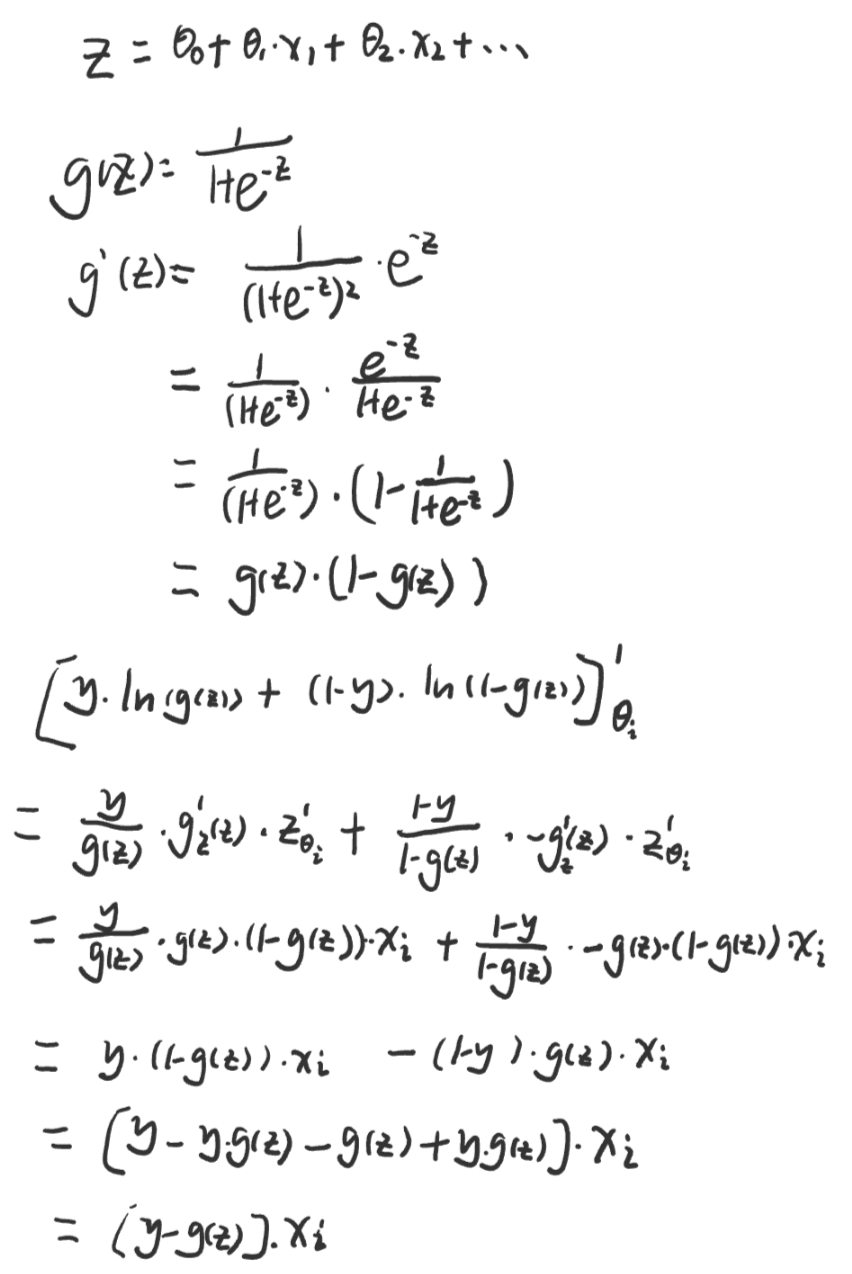 z = θ₀ + θ₁·x₁ + θ₂·x₂ + ...
g(z) = 1/(1+e^(-z))
g'(z) = 1/(1+e^(-z))² · e^(-z)
= 1/(1+e^(-z)) · e^(-z)/(1+e^(-z))
= 1/(1+e^(-z)) · (1 - 1/(1+e^(-z)))
= g(z)·(1-g(z))
[y·ln(g(z)) + (1-y)·ln(1-g(z))]'_θᵢ
= y/g(z) · g'_z(z) · z'_θᵢ + (1-y)/(1-g(z)) · -g'_z(z) · z'_θᵢ
= y/g(z) · g(z)·(1-g(z))·xᵢ + (1-y)/(1-g(z)) · -g(z)·(1-g(z))·xᵢ
= y·(1-g(z))·xᵢ - (1-y)·g(z)·xᵢ
= [y - y·g(z) - g(z) + y·g(z)]·xᵢ
= [y-g(z)]·xᵢ